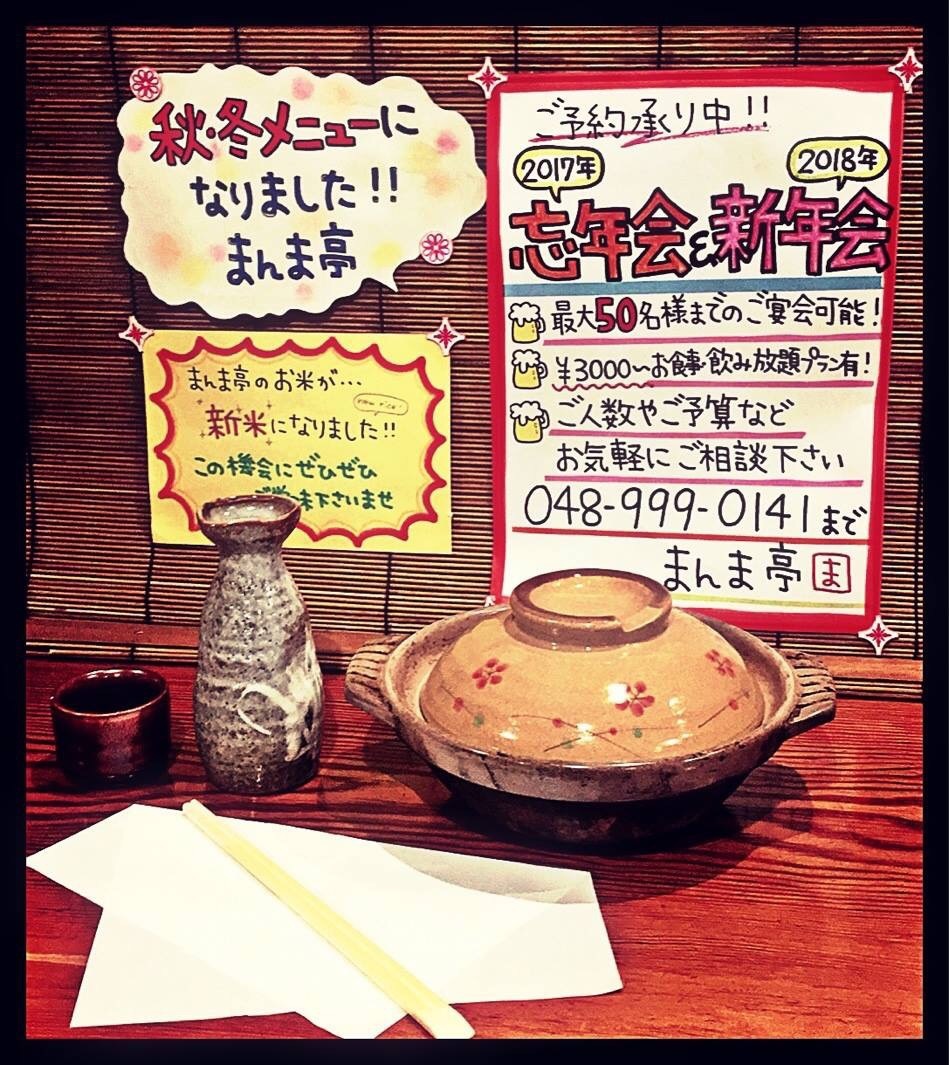 秋・冬メニューに
なりました!!
まんま亭
まんま亭のお米が…
new rice!
新米になりました!!
この機会にぜひぜひ
味下さいませ
ご予約承り中!!
2017年
2018年
忘年会&新年会
最大50名様までのご宴会可能!
¥3000〜お食事・飲み放題プラン有!
ご人数やご予算など
お気軽にご相談下さい
048-999-0141まで
まんま亭 ま